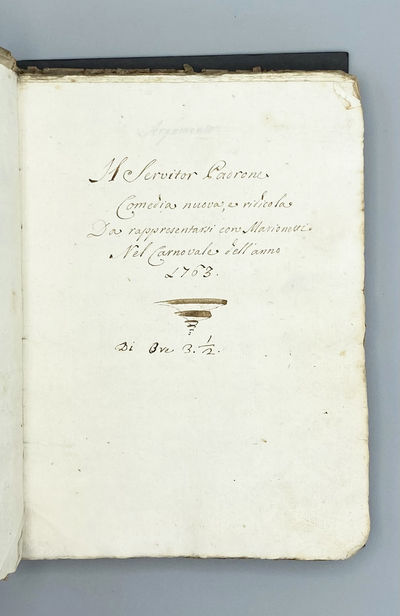 Il Servitor Padrone
Comedia nuova, e ridicola
Da rappresentarsi con Marionette
Nel Carnovale dell'anno
1763.
Di Ore 3. 1/2.